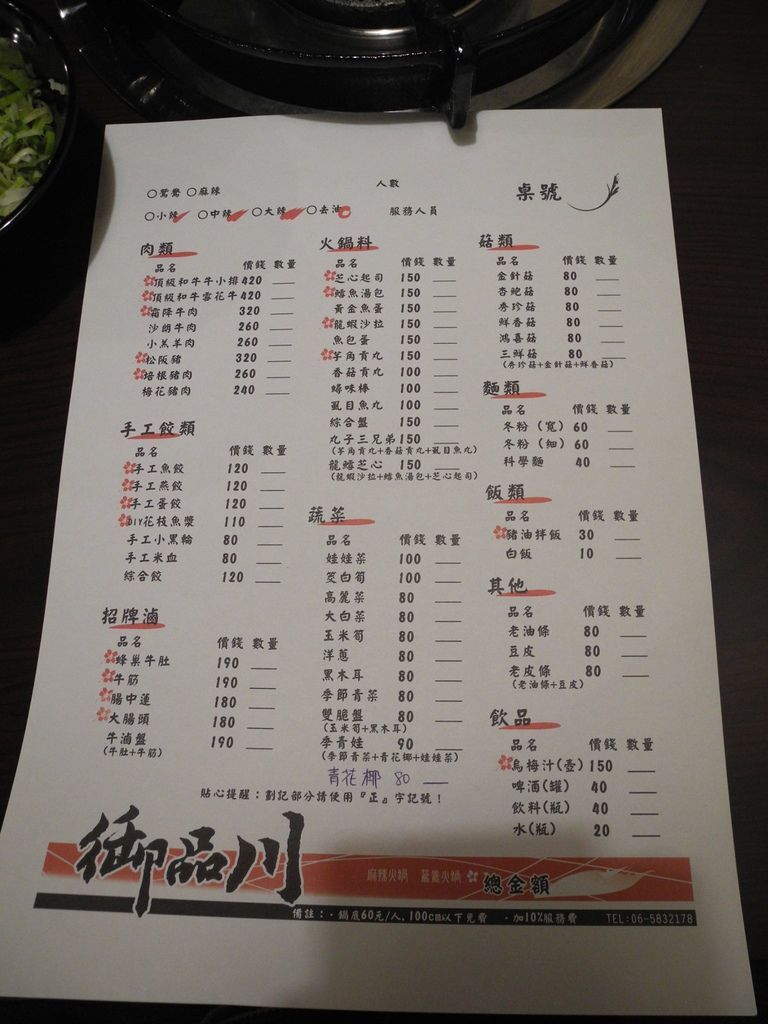 人數
桌號
○鴛鴦 ○麻辣
○小辣 ○中辣 ○大辣 ○去油
服務人員
肉類
品名 價錢 數量
頂級和牛牛小排 420
頂級和牛雪花牛 420
霜降牛肉 320
沙朗牛肉 260
小羔羊肉 260
松阪豬 320
培根豬肉 260
梅花豬肉 240
手工餃類
品名 價錢 數量
手工魚餃 120
手工燕餃 120
手工蛋餃 120
DIY花枝魚漿 110
手工小黑輪 80
手工米血 80
綜合餃 120
招牌滷
品名 價錢 數量
蜂巢牛肚 190
牛筋 190
腸中蓮 180
大腸頭 180
牛滷盤 190
(牛肚+牛筋)
火鍋料
品名 價錢 數量
芝心起司 150
鱈魚湯包 150
黃金魚蛋 150
龍蝦沙拉 150
魚包蛋 150
芋角貢丸 150
香菇貢丸 100
蟳味棒 100
虱目魚丸 100
綜合盤 150
丸子三兄弟 150
(芋角貢丸+香菇貢丸+虱目魚丸)
龍鱈芝心 150
(龍蝦沙拉+鱈魚湯包+芝心起司)
蔬菜
品名 價錢 數量
娃娃菜 100
筊白筍 100
高麗菜 80
大白菜 80
玉米筍 80
洋蔥 80
黑木耳 80
季節青菜 80
雙脆盤 80
(玉米筍+黑木耳)
季青娃 90
(季節青菜+青花椰+娃娃菜)
青花椰 80
菇類
品名 價錢 數量
金針菇 80
杏鮑菇 80
秀珍菇 80
鮮香菇 80
鴻喜菇 80
三鮮菇 80
(秀珍菇+金針菇+鮮香菇)
麵類
品名 價錢 數量
冬粉 (寬) 60
冬粉 (細) 60
科學麵 40
飯類
品名 價錢 數量
豬油拌飯 30
白飯 10
其他
品名 價錢 數量
老油條 80
豆皮 80
老皮條 80
(老油條+豆皮)
飲品
品名 價錢 數量
烏梅汁(壺) 150
啤酒(罐) 40
飲料(瓶) 40
水(瓶) 20
貼心提醒：劃記部分請使用『正』字記號！
御品川
麻辣火鍋 鴛鴦火鍋 總金額
備註：‧鍋底60元/人,100cm以下免費 ‧加10%服務費 TEL:06-5832178